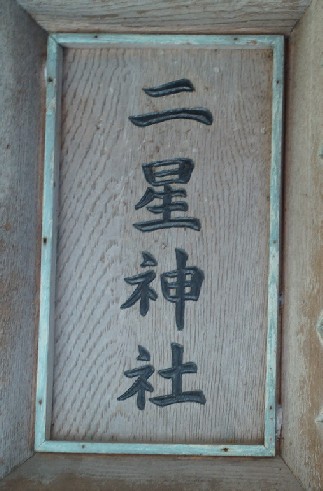 二星神社